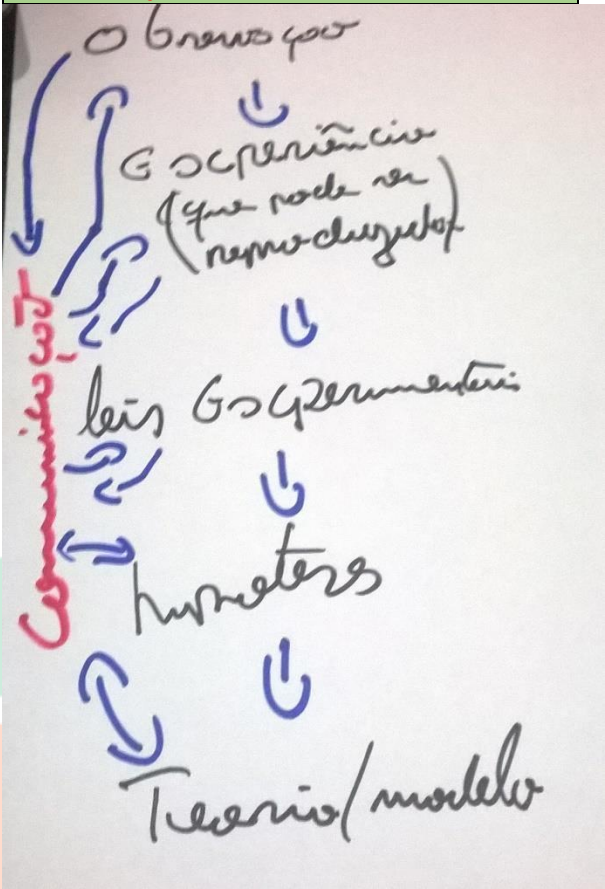 Observação
Experiência
(que pode ser
reproduzida)
leis Experimentais
hipoteses
Teoria/modelo
Comunicação